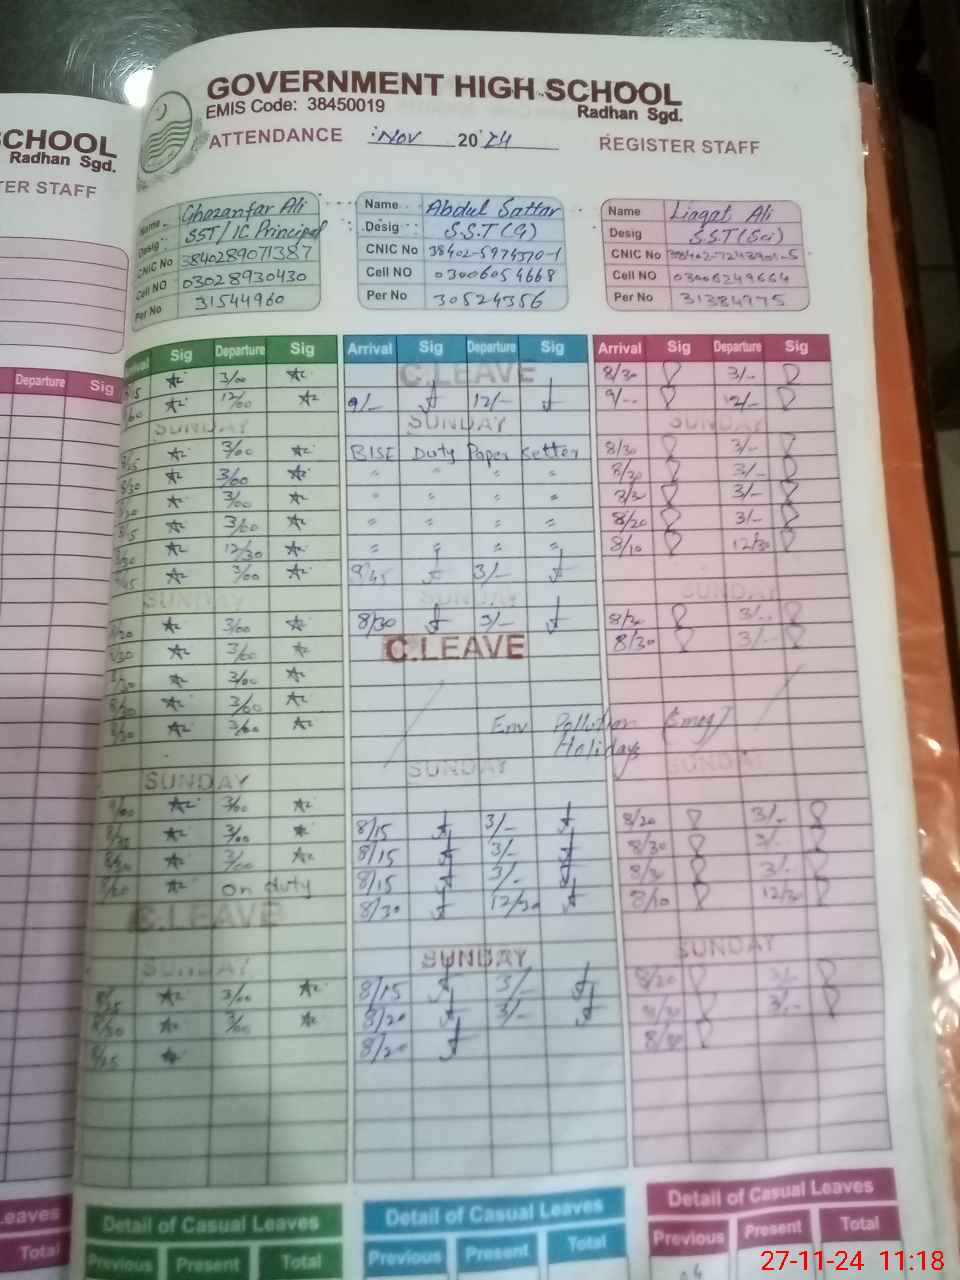 SCHOOL
Radhan Sgd.
TER STAFF
Departure Sig
GOVERNMENT HIGH SCHOOL
EMIS Code: 38450019 Radhan Sgd.
ATTENDANCE Nov 2024 REGISTER STAFF
Name Ghazanfar Ali
Desig SST/IC Principal
CNIC No 3840289071387
Cell NO 03028930430
Per No 31544960
Name Abdul Sattar
Desig S.S.T(G)
CNIC No 38402-5974370-1
Cell NO 03006054668
Per No 30524356
Name Liaqat Ali
Desig S.S.T(Sci)
CNIC No
Cell NO 03006249664
Per No 31384975
Sig Departure Sig Arrival Sig Departure Sig Arrival Sig Departure Sig
3/00 C.LEAVE 8/30 3/-
12/00 9/- 12/- 9/-- 12/-
SUNDAY SUNDAY SUNDAY
3/00 BISE Duty Paper Setter 8/30 3/-
3/00 " " " " 8/30 3/-
3/00 " " " " 3/-
3/00 " " " " 8/20 3/-
12/30 " " " " 8/10 12/30
3/00 9/45 3/-
SUNDAY SUNDAY SUNDAY
3/00 8/30 3/- 8/30 3/-
3/00 C.LEAVE 8/30 3/-
3/00
3/00
3/00 Env Pollution (Smog)
Holidays
SUNDAY SUNDAY SUNDAY
9/00 3/00 8/15 3/- 8/20 3/-
8/30 3/00 8/15 3/- 8/30 3/-
8/30 3/00 8/15 3/- 8/30 3/-
on duty 8/30 12/30 8/10 12/30
C.LEAVE
SUNDAY SUNDAY SUNDAY
3/00 8/15 3/- 8/20 3/-
8/30 3/00 8/20 3/- 8/30 3/-
8/25 8/20 8/30
Leaves
Total
Detail of Casual Leaves
Previous Present Total
Detail of Casual Leaves
Previous Present Total
Detail of Casual Leaves
Previous Present Total
27-11-24 11:18